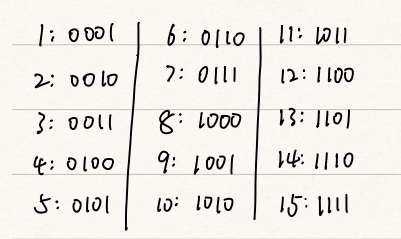 1: 0001
2: 0010
3: 0011
4: 0100
5: 0101
6: 0110
7: 0111
8: 1000
9: 1001
10: 1010
11: 1011
12: 1100
13: 1101
14: 1110
15: 1111